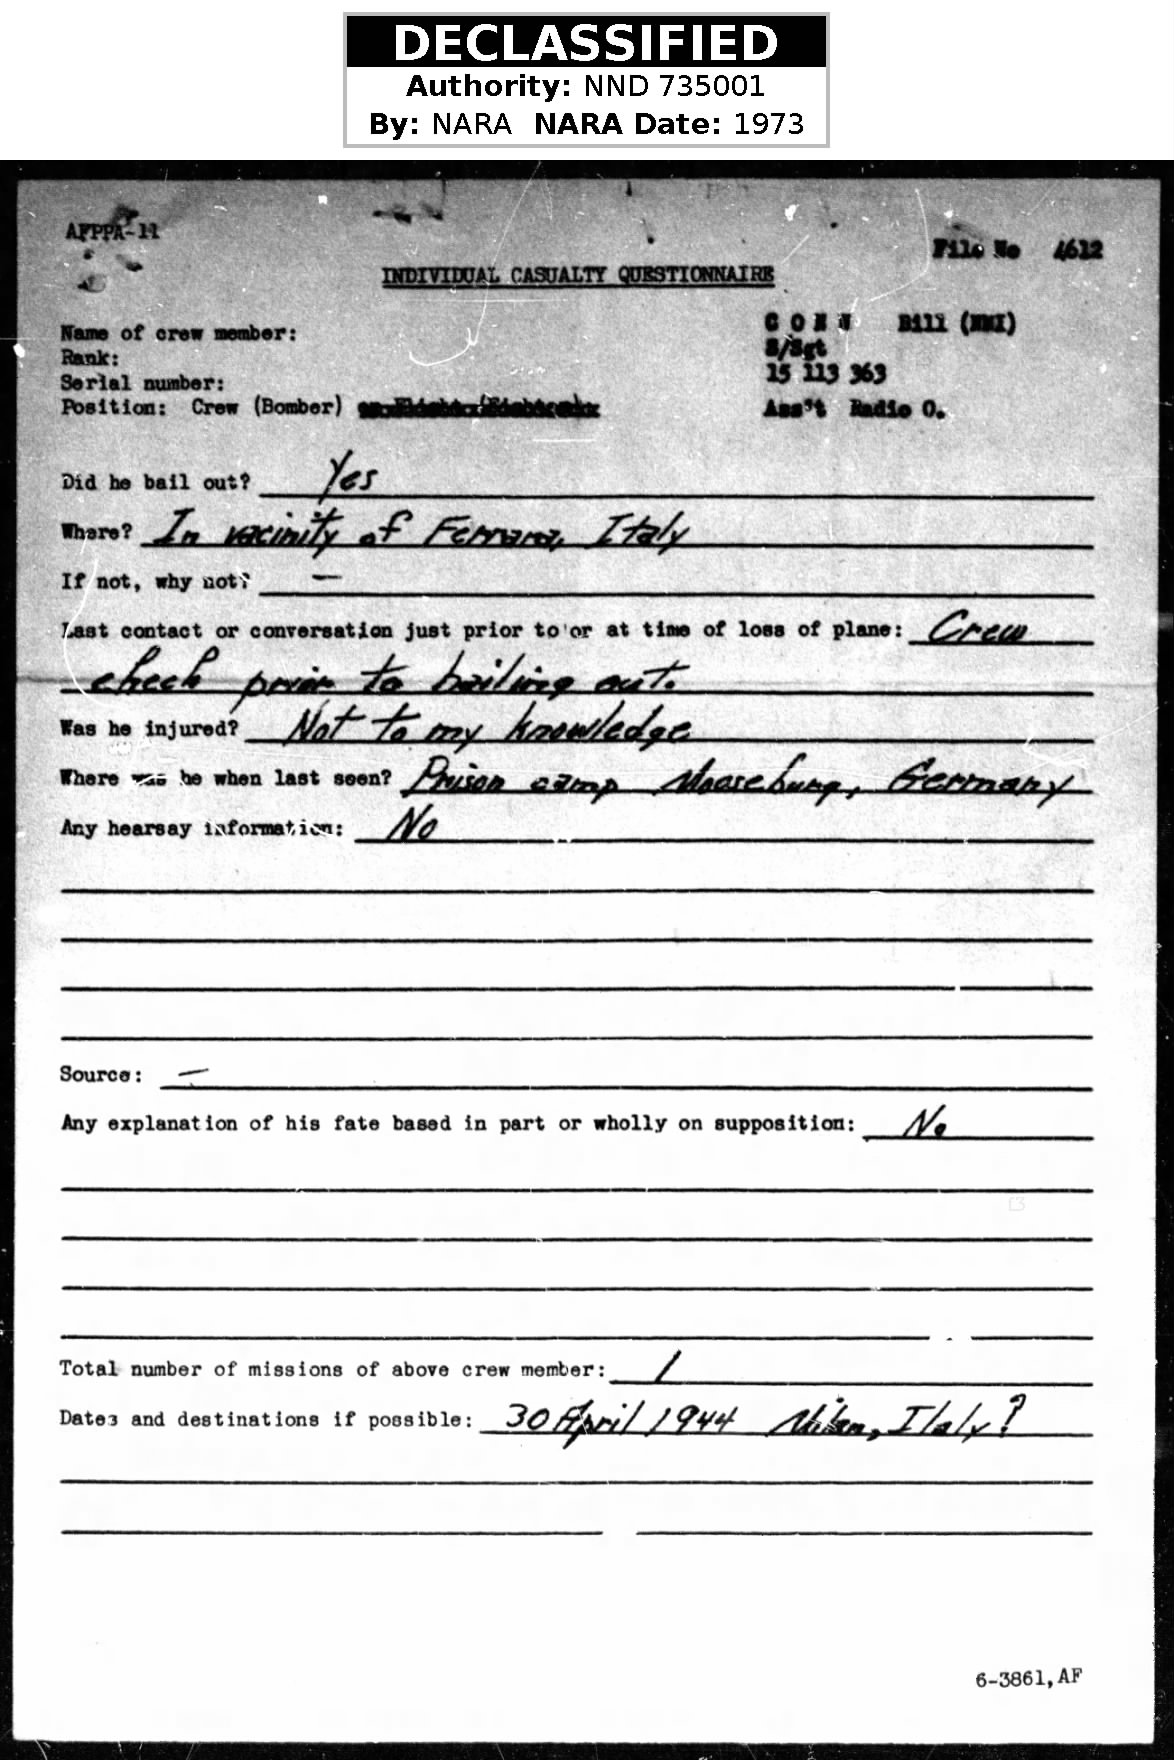 DECLASSIFIED
Authority: NND 735001
By: NARA NARA Date: 1973
AFPPA-11
File No 4612
INDIVIDUAL CASUALTY QUESTIONNAIRE
Name of crew member: C O N N Bill (NMI)
Rank: S/Sgt
Serial number: 15 113 363
Position: Crew (Bomber) Ass't Radio O.
Did he bail out? Yes
Where? In vacinity of Ferrara, Italy
If not, why not? —
Last contact or conversation just prior to or at time of loss of plane: Crew
check prior to bailing out.
Was he injured? Not to my knowledge
Where was he when last seen? Prison camp Mooseburg, Germany
Any hearsay information: No
Source: —
Any explanation of his fate based in part or wholly on supposition: No
Total number of missions of above crew member: 1
Dates and destinations if possible: 30 April 1944 Milan, Italy?
6-3861,AF